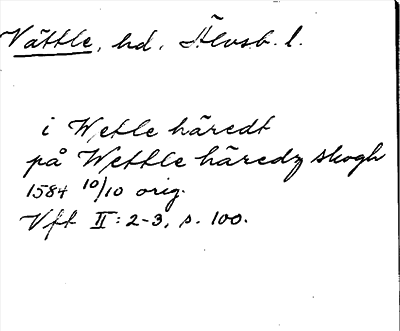 Vättle, hd, Älvsb. l.
i Wetle häredt
på Wettle häredz skogh
1584 10/10 orig.
Vft II: 2-3, s. 100.